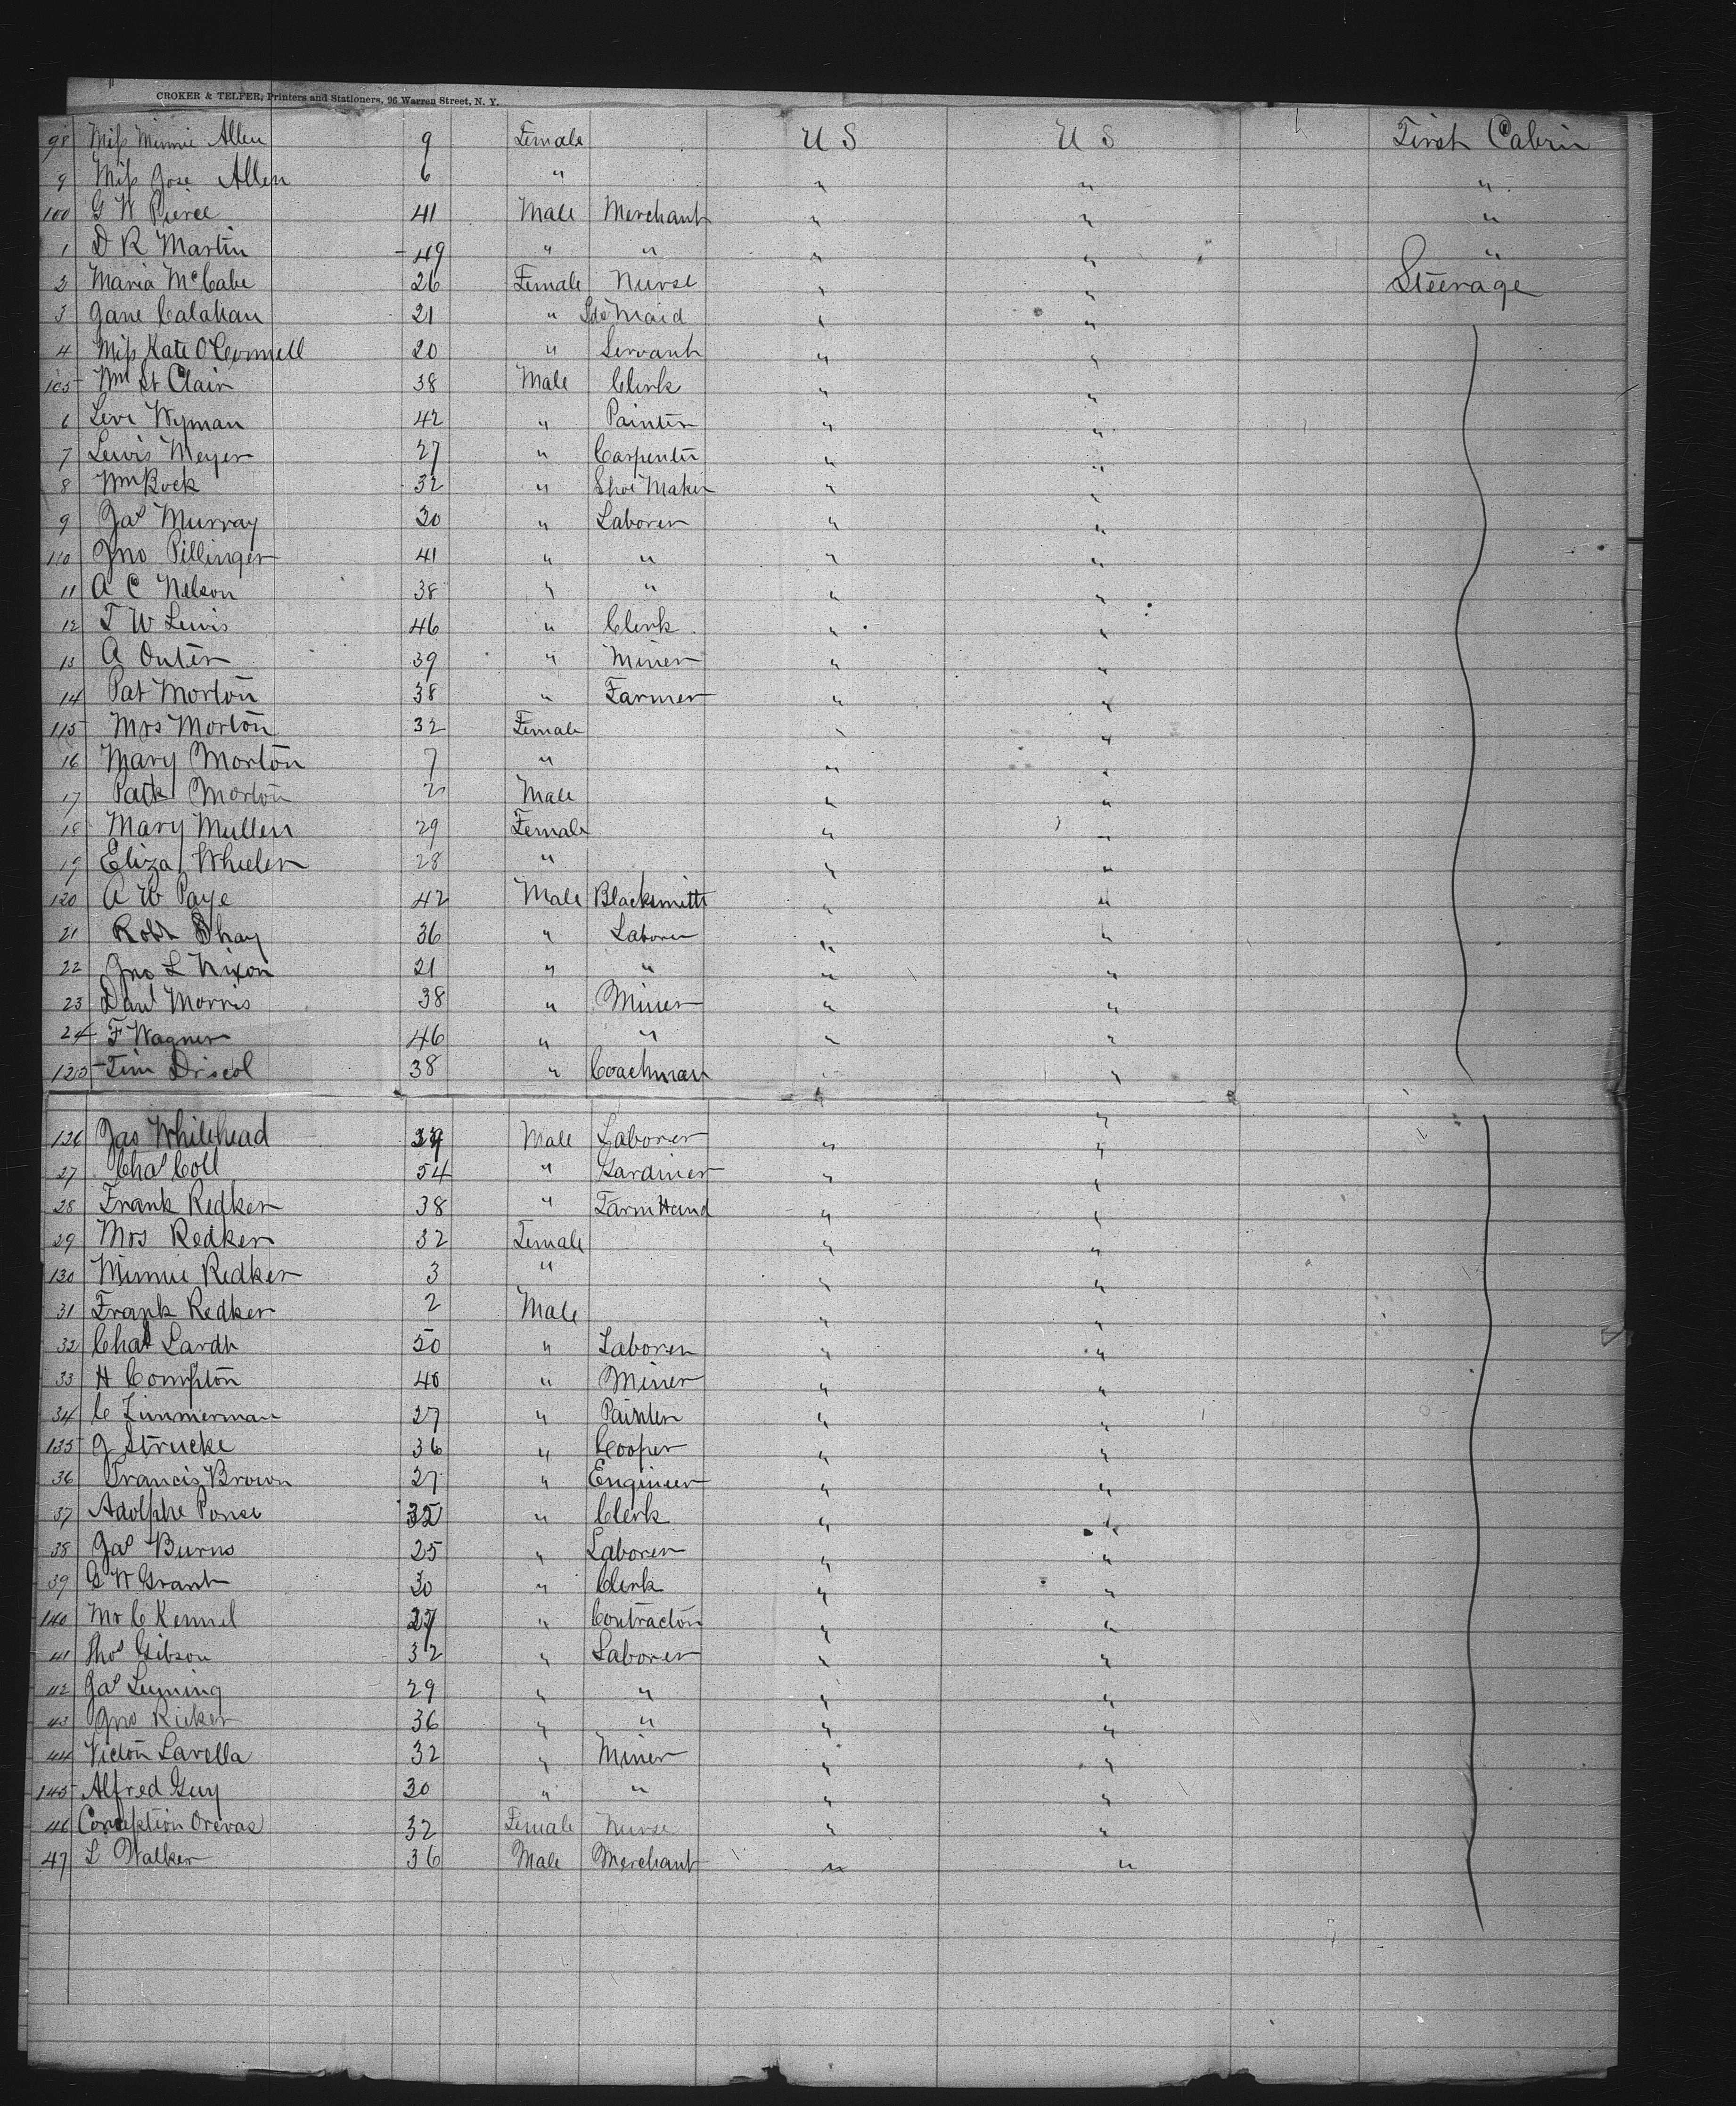 CROKER & TELFER, Printers and Stationers, 96 Warren Street, N. Y.
98 Miss Minnie Allen 9 Female U S U S First Cabin
9 Miss Josie Allen 6 " " " "
100 G W Pierce 41 Male Merchant " " "
1 D R Martin 49 " " " " "
2 Maria McCabe 26 Female Nurse " " Steerage
3 Jane Calahan 21 " Lds Maid " "
4 Miss Kate O'Connell 20 " Servant " "
105 Wm St Clair 38 Male Clerk " "
6 Levi Wyman 42 " Painter " "
7 Lewis Meyer 27 " Carpenter " "
8 Wm Bock 32 " Shoe Maker " "
9 Jas Murray 30 " Laborer " "
110 Jno Pillinger 41 " " " "
11 A C Nelson 38 " " " "
12 T W Lewis 46 " Clerk " "
13 A Outer 39 " Miner " "
14 Pat Morton 38 " Farmer " "
115 Mrs Morton 32 Female " "
16 Mary Morton 7 " " "
17 Patk Morton 2 Male " "
18 Mary Mullen 29 Female " "
19 Eliza Wheeler 28 " " "
120 A W Paye 42 Male Blacksmith " "
21 Robt Shay 36 " Laborer " "
22 Jno L Nixon 21 " " " "
23 Danl Morris 38 " Miner " "
24 F Wagner 46 " " " "
125 Tim Driscol 38 " Coachman " "
126 Jas Whitehead 39 Male Laborer " "
27 Chas Coll 54 " Gardiner " "
28 Frank Redker 38 " Farm Hand " "
29 Mrs Redker 32 Female " "
130 Minnie Redker 3 " " "
31 Frank Redker 2 Male " "
32 Chas Lardh 50 " Laborer " "
33 H Compton 40 " Miner " "
34 C Zimmerman 27 " Painter " "
135 G Strucke 36 " Cooper " "
36 Francis Brown 27 " Engineer " "
37 Adolphe Ponse 35 " Clerk " "
38 Jas Burns 25 " Laborer " "
39 G W Grant 30 " Clerk " "
140 Mr C Kennel 27 " Contractor " "
41 Thos Gibson 32 " Laborer " "
42 Jas Luning 29 " " " "
43 Jno Ricker 36 " " " "
44 Victor Lavella 32 " Miner " "
145 Alfred Guy 30 " " " "
46 Conception Orevas 32 Female Nurse " "
47 L Walker 36 Male Merchant " "